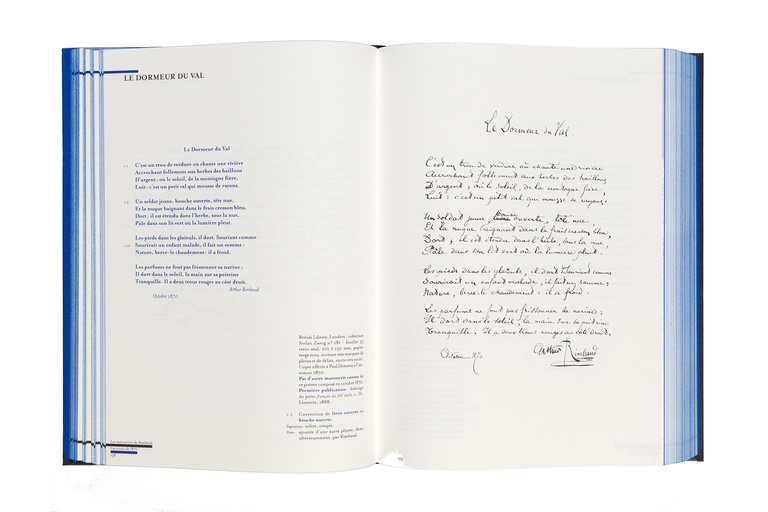 LE DORMEUR DU VAL
Le Dormeur du Val
C'est un trou de verdure où chante une rivière
Accrochant follement aux herbes des haillons
D'argent ; où le soleil, de la montagne fière,
Luit : c'est un petit val qui mousse de rayons.
5
Un soldat jeune, bouche ouverte, tête nue,
Et la nuque baignant dans le frais cresson bleu,
Dort ; il est étendu dans l'herbe, sous la nue,
Pâle dans son lit vert où la lumière pleut.
Les pieds dans les glaïeuls, il dort. Souriant comme
10
Sourirait un enfant malade, il fait un somme :
Nature, berce-le chaudement : il a froid.
Les parfums ne font pas frissonner sa narine ;
Il dort dans le soleil, la main sur sa poitrine
Tranquille. Il a deux trous rouges au côté droit.
Arthur Rimbaud
Octobre 1870
British Library, Londres - collection
Stefan Zweig n° 181 - feuillet
recto seul, papier
vergé
pleins et de déliés, encre très noire.
Copie offerte à Paul Demeny
1870.
Pas d'autre manuscrit connu de
ce poème composé en octobre 1870.
Première publication : Anthologie
des poètes français du XIXe siècle, t. IV,
Lemerre, 1888.
v. 5 Correction de lèvre ouverte en
bouche ouverte.
Signature : sobre, simple.
Date : ajoutée d'une autre plume, donc
ultérieurement, par Rimbaud.
Les manuscrits de Rimbaud
Le Dormeur du Val.
C'est un trou de verdure où chante une rivière
Accrochant follement aux herbes des haillons
D'argent ; où le soleil, de la montagne fière,
Luit : c'est un petit val qui mousse de rayons.
Un soldat jeune, bouche ouverte, tête nue,
Et la nuque baignant dans le frais cresson bleu,
Dort ; il est étendu dans l'herbe, sous la nue,
Pâle dans son lit vert où la lumière pleut.
Les pieds dans les glaïeuls, il dort. Souriant comme
Sourirait un enfant malade, il fait un somme :
Nature, berce-le chaudement : il a froid.
Les parfums ne font pas frissonner sa narine ;
Il dort dans le soleil, la main sur sa poitrine
Tranquille. Il a deux trous rouges au côté droit.
Octobre 1870
Arthur Rimbaud